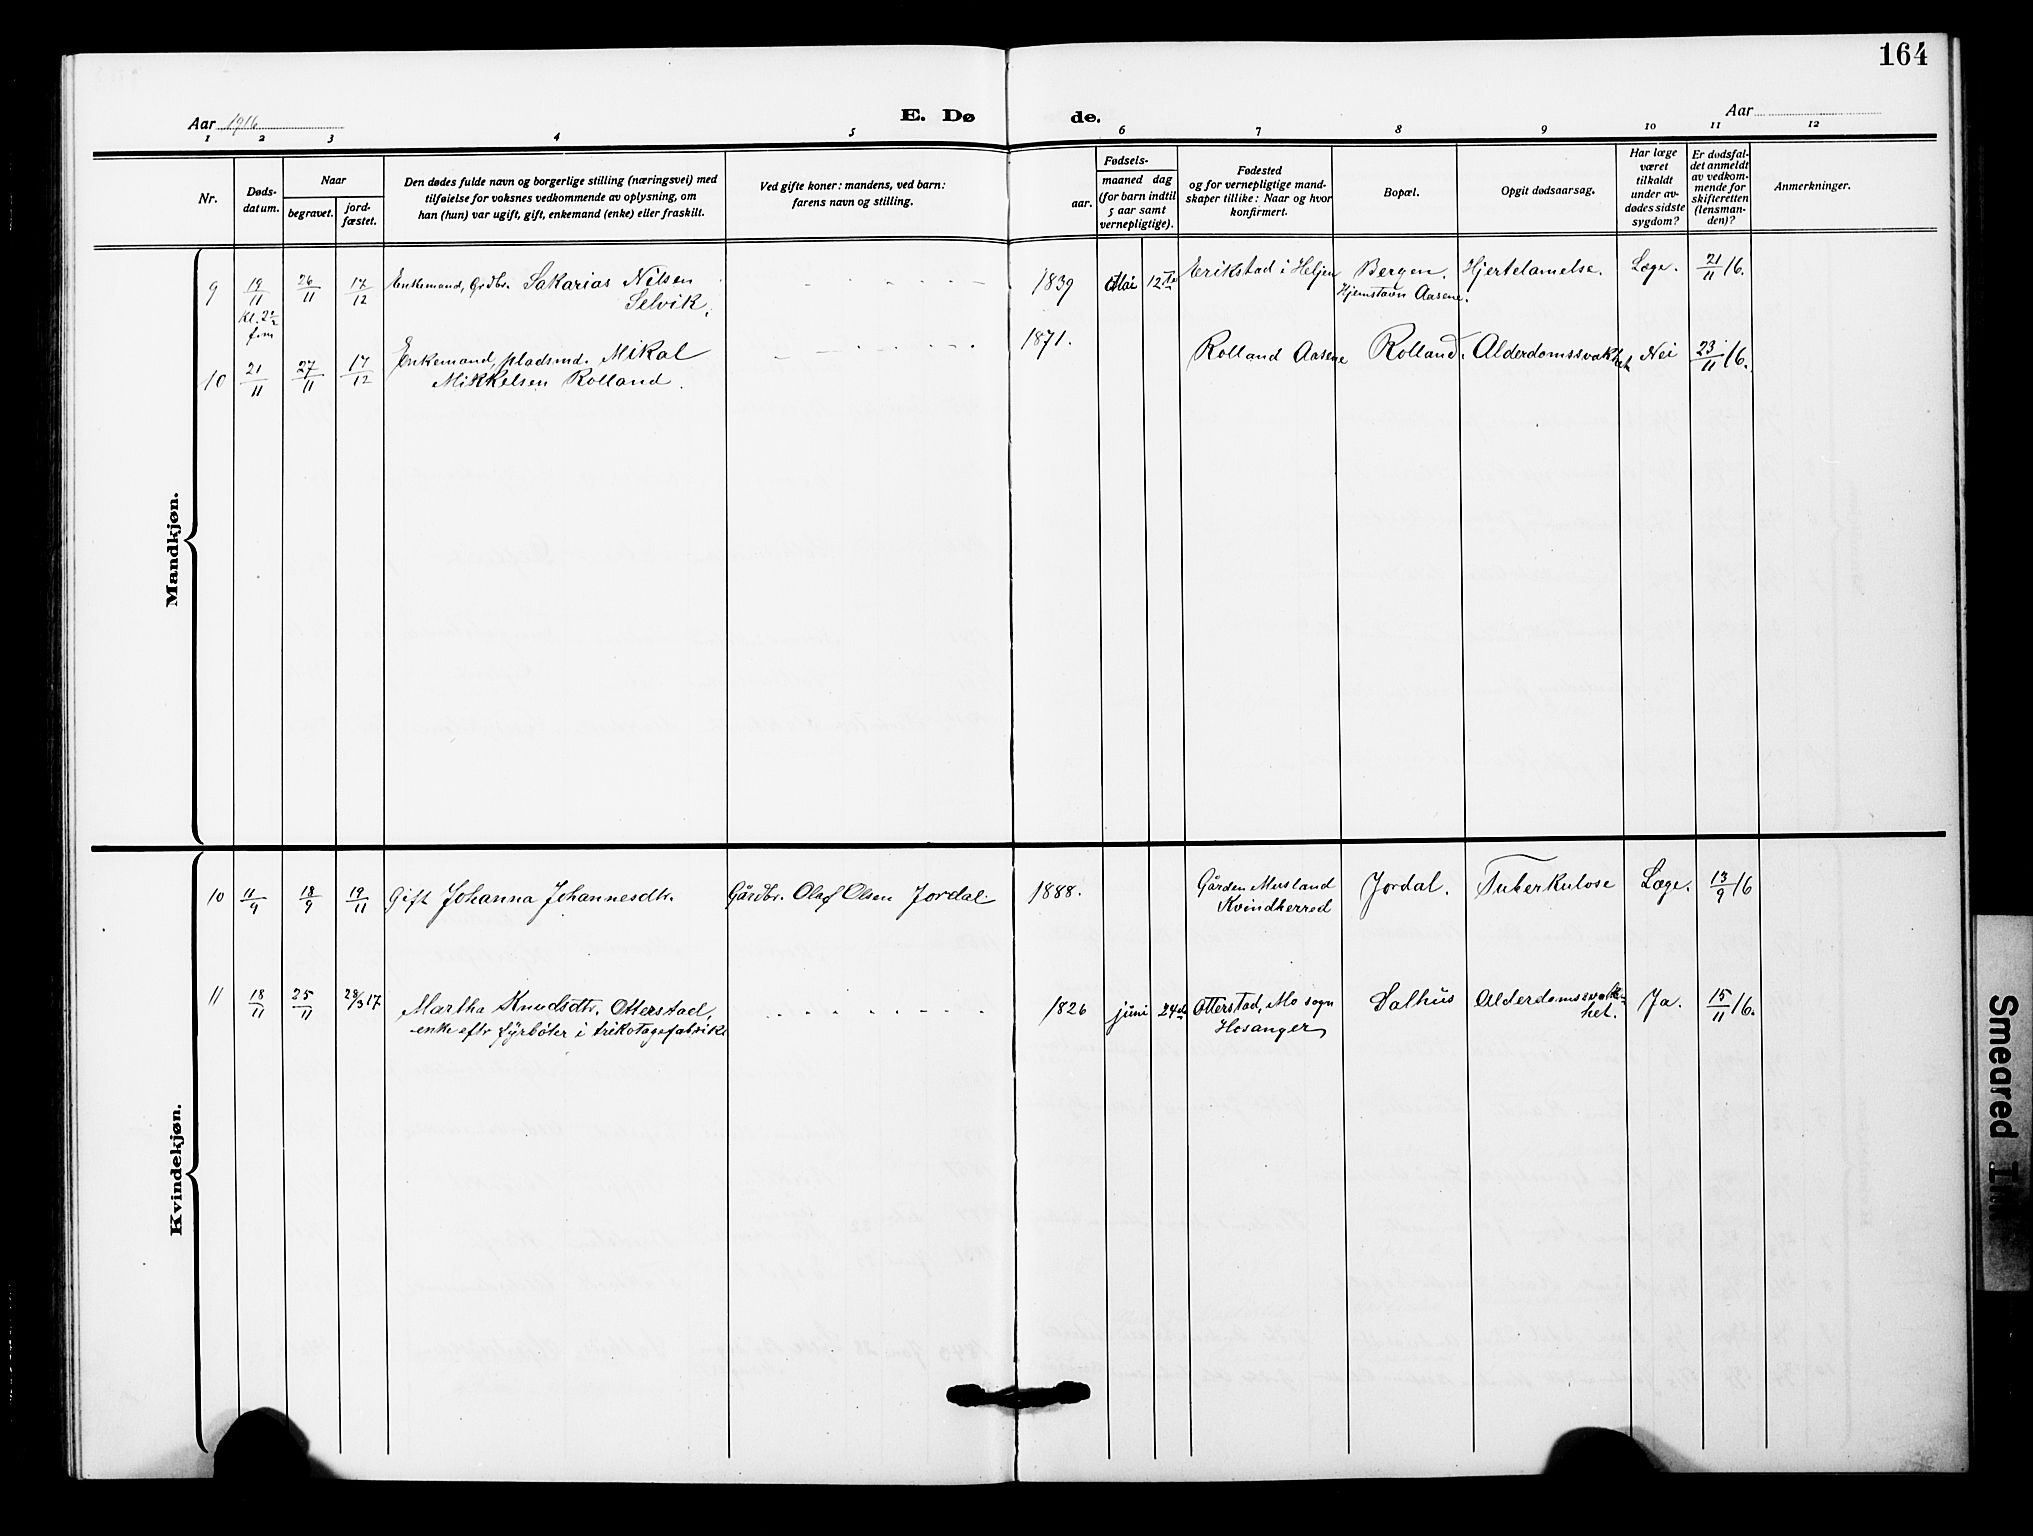 164
Aar 1916
E. Dø
de.
Aar
1 2 3 4 5 6 7 8 9 10 11 12
Nr.
Døds-
datum.
Naar
begravet.
jord-
fæstet.
Den dødes fulde navn og borgerlige stilling (næringsvei) med
tilføielse for voksnes vedkommende av oplysning, om
han (hun) var ugift, gift, enkemand (enke) eller fraskilt.
Ved gifte koner: mandens, ved barn:
farens navn og stilling.
Fødsels-
aar.
maaned dag
(for barn indtil
5 aar samt
vernepligtige).
Fødested
og for vernepligtige mand-
skaper tillike: Naar og hvor
konfirmert.
Bopæl.
Opgit dødsaarsag.
Har læge
været
tilkaldt
under av-
dødes sidste
sygdom?
Er dødsfal-
det anmeldt
av vedkom-
mende for
skifteretten
(lensman-
den)?
Anmerkninger.
Mandkjøn.
9 19/11 26/11 17/12 Enkemand, Grdbr. Sakarias Nilsen 1839 Mai 12te Erikstad i Heljen Bergen. Hjertelamelse. Læge. 21/11 16.
Kl. 2 1/2 Selvik. Hjemstavn Aasene.
fm
10 21/11 27/11 17/12 Enkemand, pladsmd. Mikal 1871. Rolland Aasene Rolland. Alderdomssvakhet Nei 23/11 16.
Mikkelsen Rolland.
Kvindekjøn.
10 11/9 18/9 19/11 Gift Johanna Johannesdtr. Gårdbr. Olaf Olsen Jordal. 1888. Gården Musland Jordal. Tuberkulose Læge. 13/9 16
Kvindherred
11 18/11 25/11 28/3 17 Martha Knudsdtr. Otterstad, 1826 juni 24de Otterstad, Mo sogn Salhus Alderdomssvak- Ja. 15/11 16.
enke eftr fyrbøter i trikotagefabrikk Hosanger het.
Smeared Ink